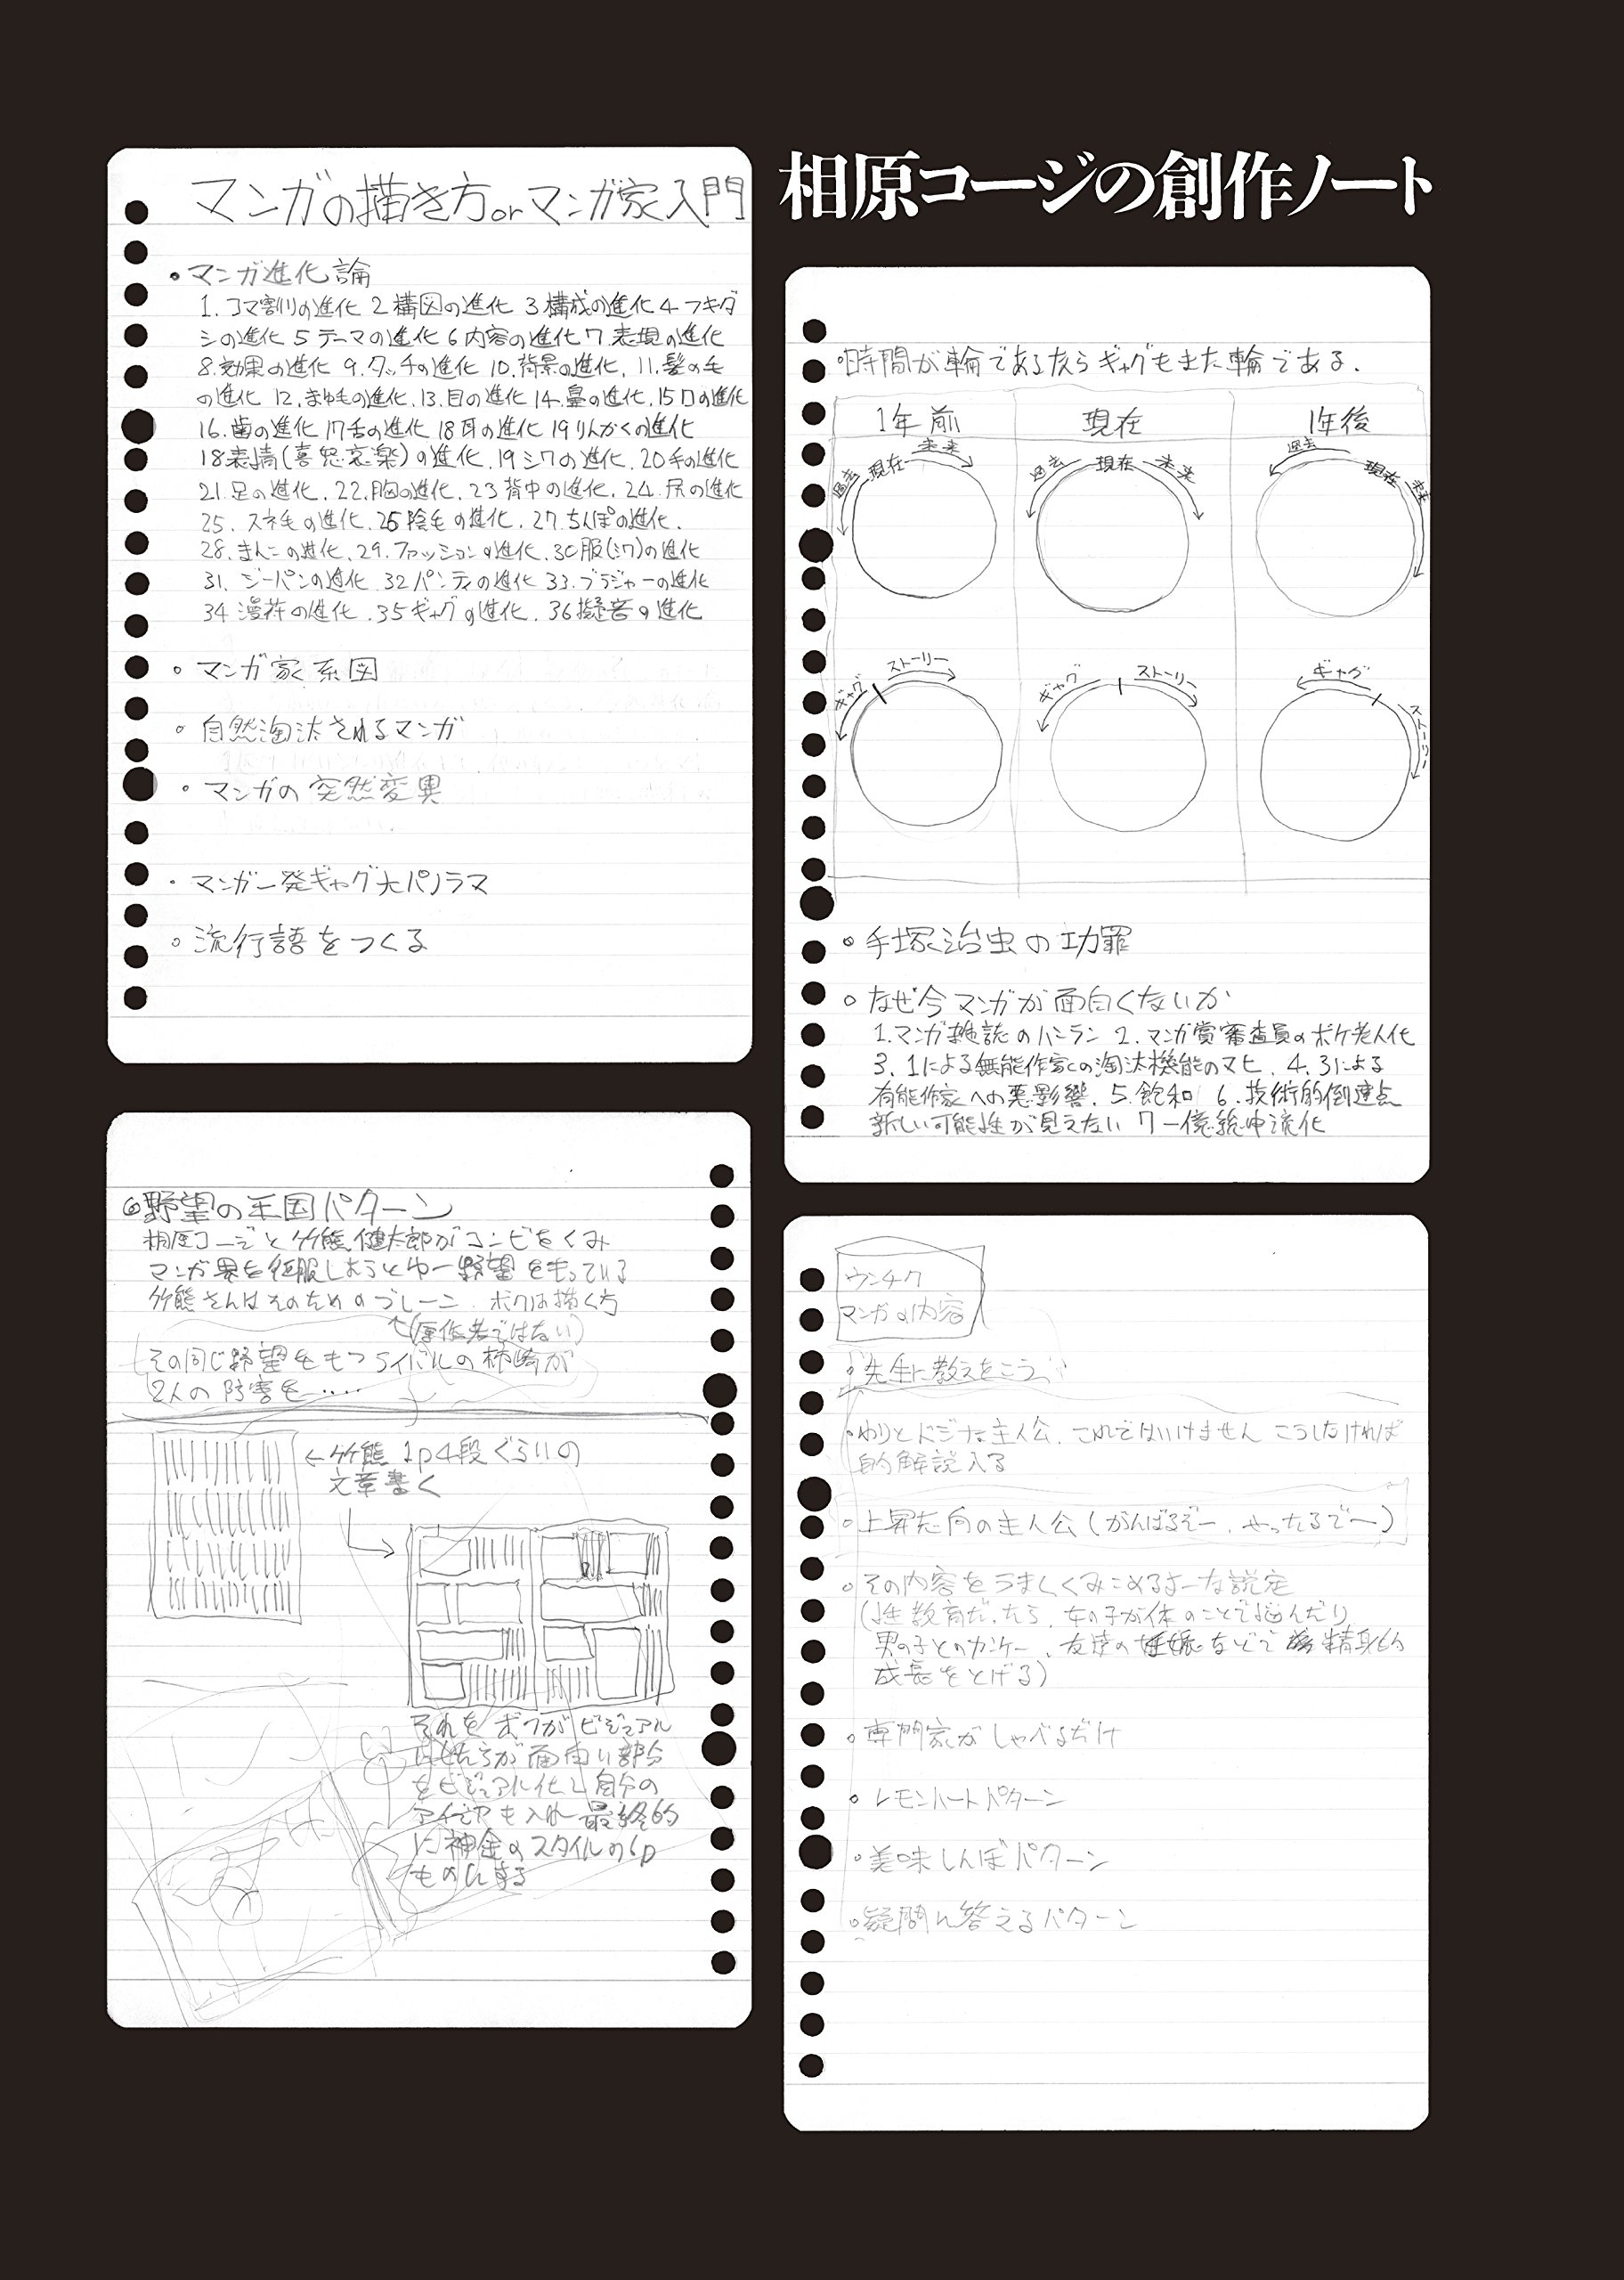 相原コージの創作ノート
マンガの描き方orマンガ家入門
・マンガ進化論
1.コマ割りの進化 2 構図の進化 3 構成の進化 4 フキダ
シの進化 5 テーマの進化 6 内容の進化 7.表現の進化
8.効果の進化 9.タッチの進化 10.背景の進化. 11.髪の毛
の進化 12.まゆ毛の進化.13.目の進化 14.鼻の進化.15口の進化
16.歯の進化 17舌の進化 18耳の進化 19りんかくの進化
18表情(喜怒哀楽)の進化.19シワの進化.20手の進化
21.足の進化.22.胸の進化.23背中の進化.24.尻の進化
25.スネ毛の進化.26陰毛の進化.27.ちんぽの進化.
28.まんこの進化.29.ファッションの進化.30服(シワ)の進化
31.ジーパンの進化.32パンティの進化 33.ブラジャーの進化
34漫符の進化.35ギャグの進化.36擬音の進化
○マンガ家系図
○自然淘汰されるマンガ
・マンガの突然変異
・マンガ一発ギャグ大パノラマ
○流行語をつくる
○時間が輪であるならギャグもまた輪である.
1年前 現在 1年後
過去 現在 未来
過去 現在 未来
過去 現在 未来
ギャグ ストーリー
ギャグ ストーリー
ギャグ ストーリー
○手塚治虫の功罪
○なぜ今マンガが面白くないか
1.マンガ雑誌のハンラン 2.マンガ賞審査員のボケ老人化
3.1による無能作家の淘汰機能のマヒ.4.3による
有能作家への悪影響.5.飽和 6.技術的到達点
新しい可能性が見えない 7一億総中流化
◎野望の王国パターン
相原コージと竹熊健太郎がコンビをくみ
マンガ界を征服しようとゆー野望をもっている
竹熊さんはそのためのブレーン.ボクは描く方
↑(原作者ではない)
その同じ野望をもつライバルの柿崎が
2人の障害を....
←竹熊 1p4段ぐらいの
文章書く
それをボクがビジュアル
にしたら面白い部分
をビジュアル化し自分の
アイデアも入れ最終的
に神金のスタイルの6p
ものにする
ウンチク
マンガの内容
・先生に教えをこう
・わりとドジな主人公.これではいけません こうしなければ
的解説入る
○上昇志向の主人公(がんばるぞー.やったるでー)
○その内容をうまくくみこめるよーな設定
(性教育だったら.女の子が体のことで悩んだり
男の子とのカンケー.友達の妊娠などで精身的
成長をとげる)
○専門家がしゃべるだけ
・レモンハートパターン
・美味しんぼパターン
○疑問に答えるパターン